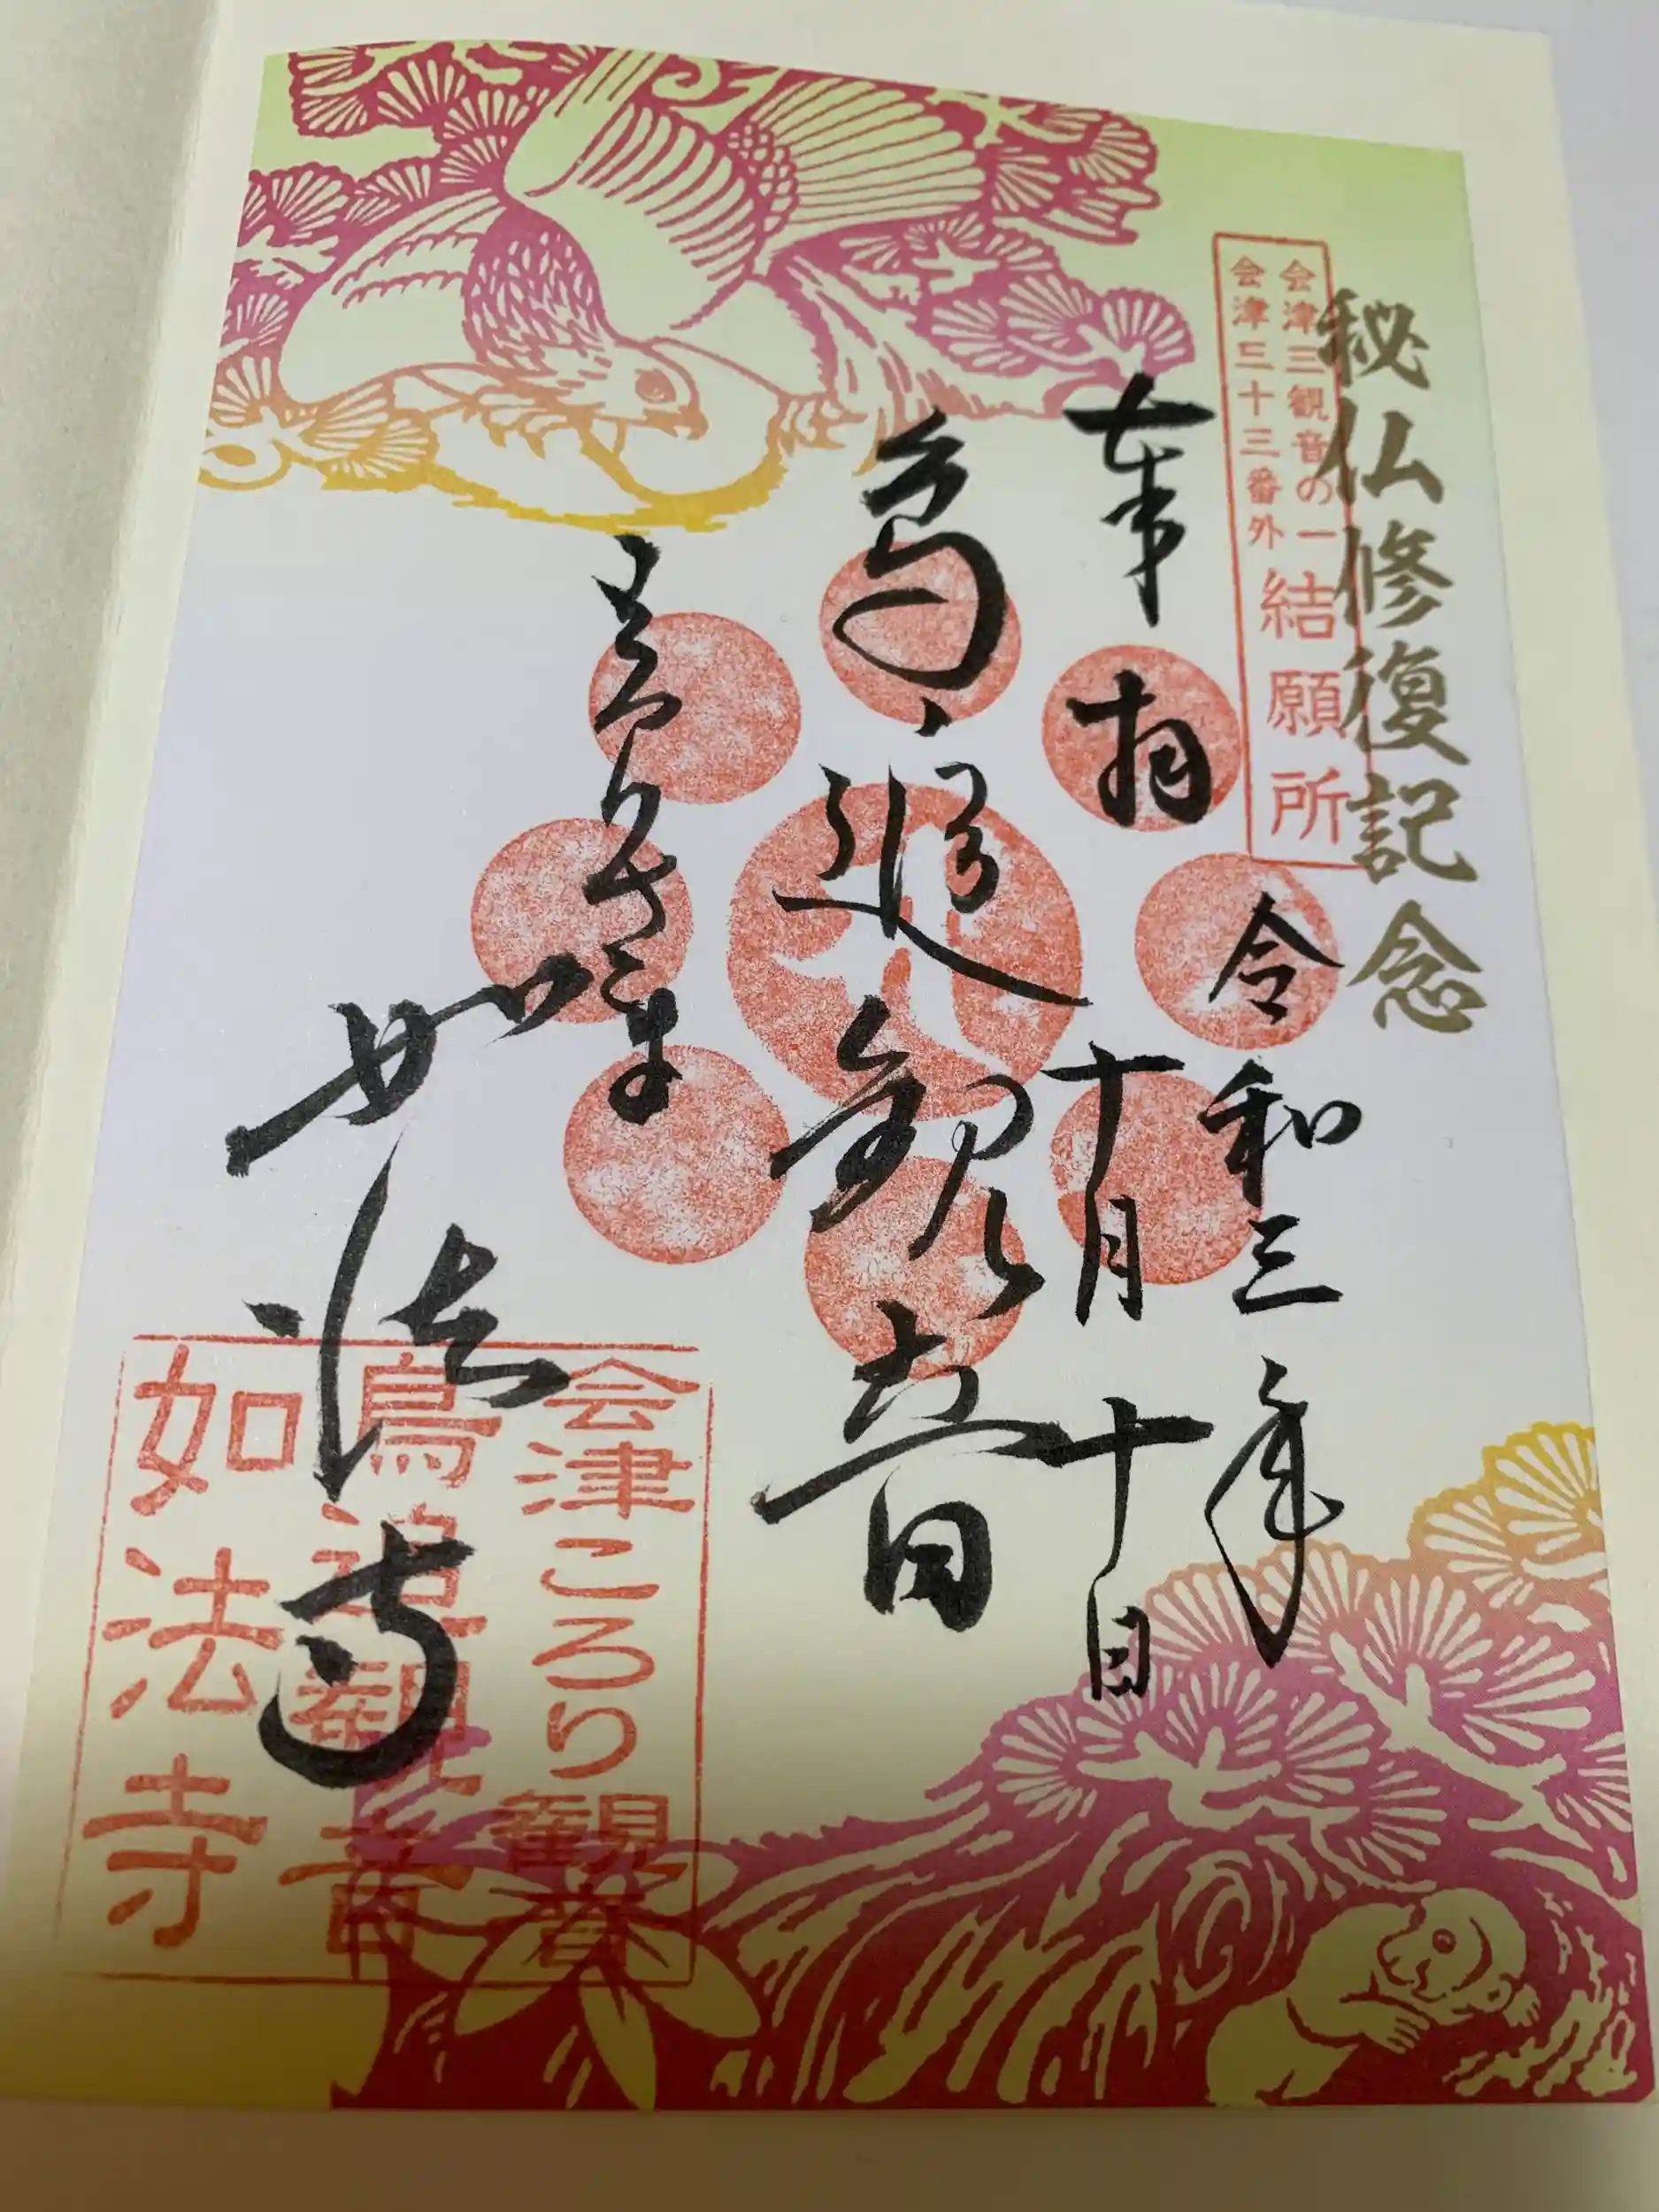 秘仏修復記念
会津三観音の一
会津三十三番外
結願所
令和三年
奉拝
十月十日
鳥追観音
如法寺
会津ころり観音
鳥追観音
如法寺